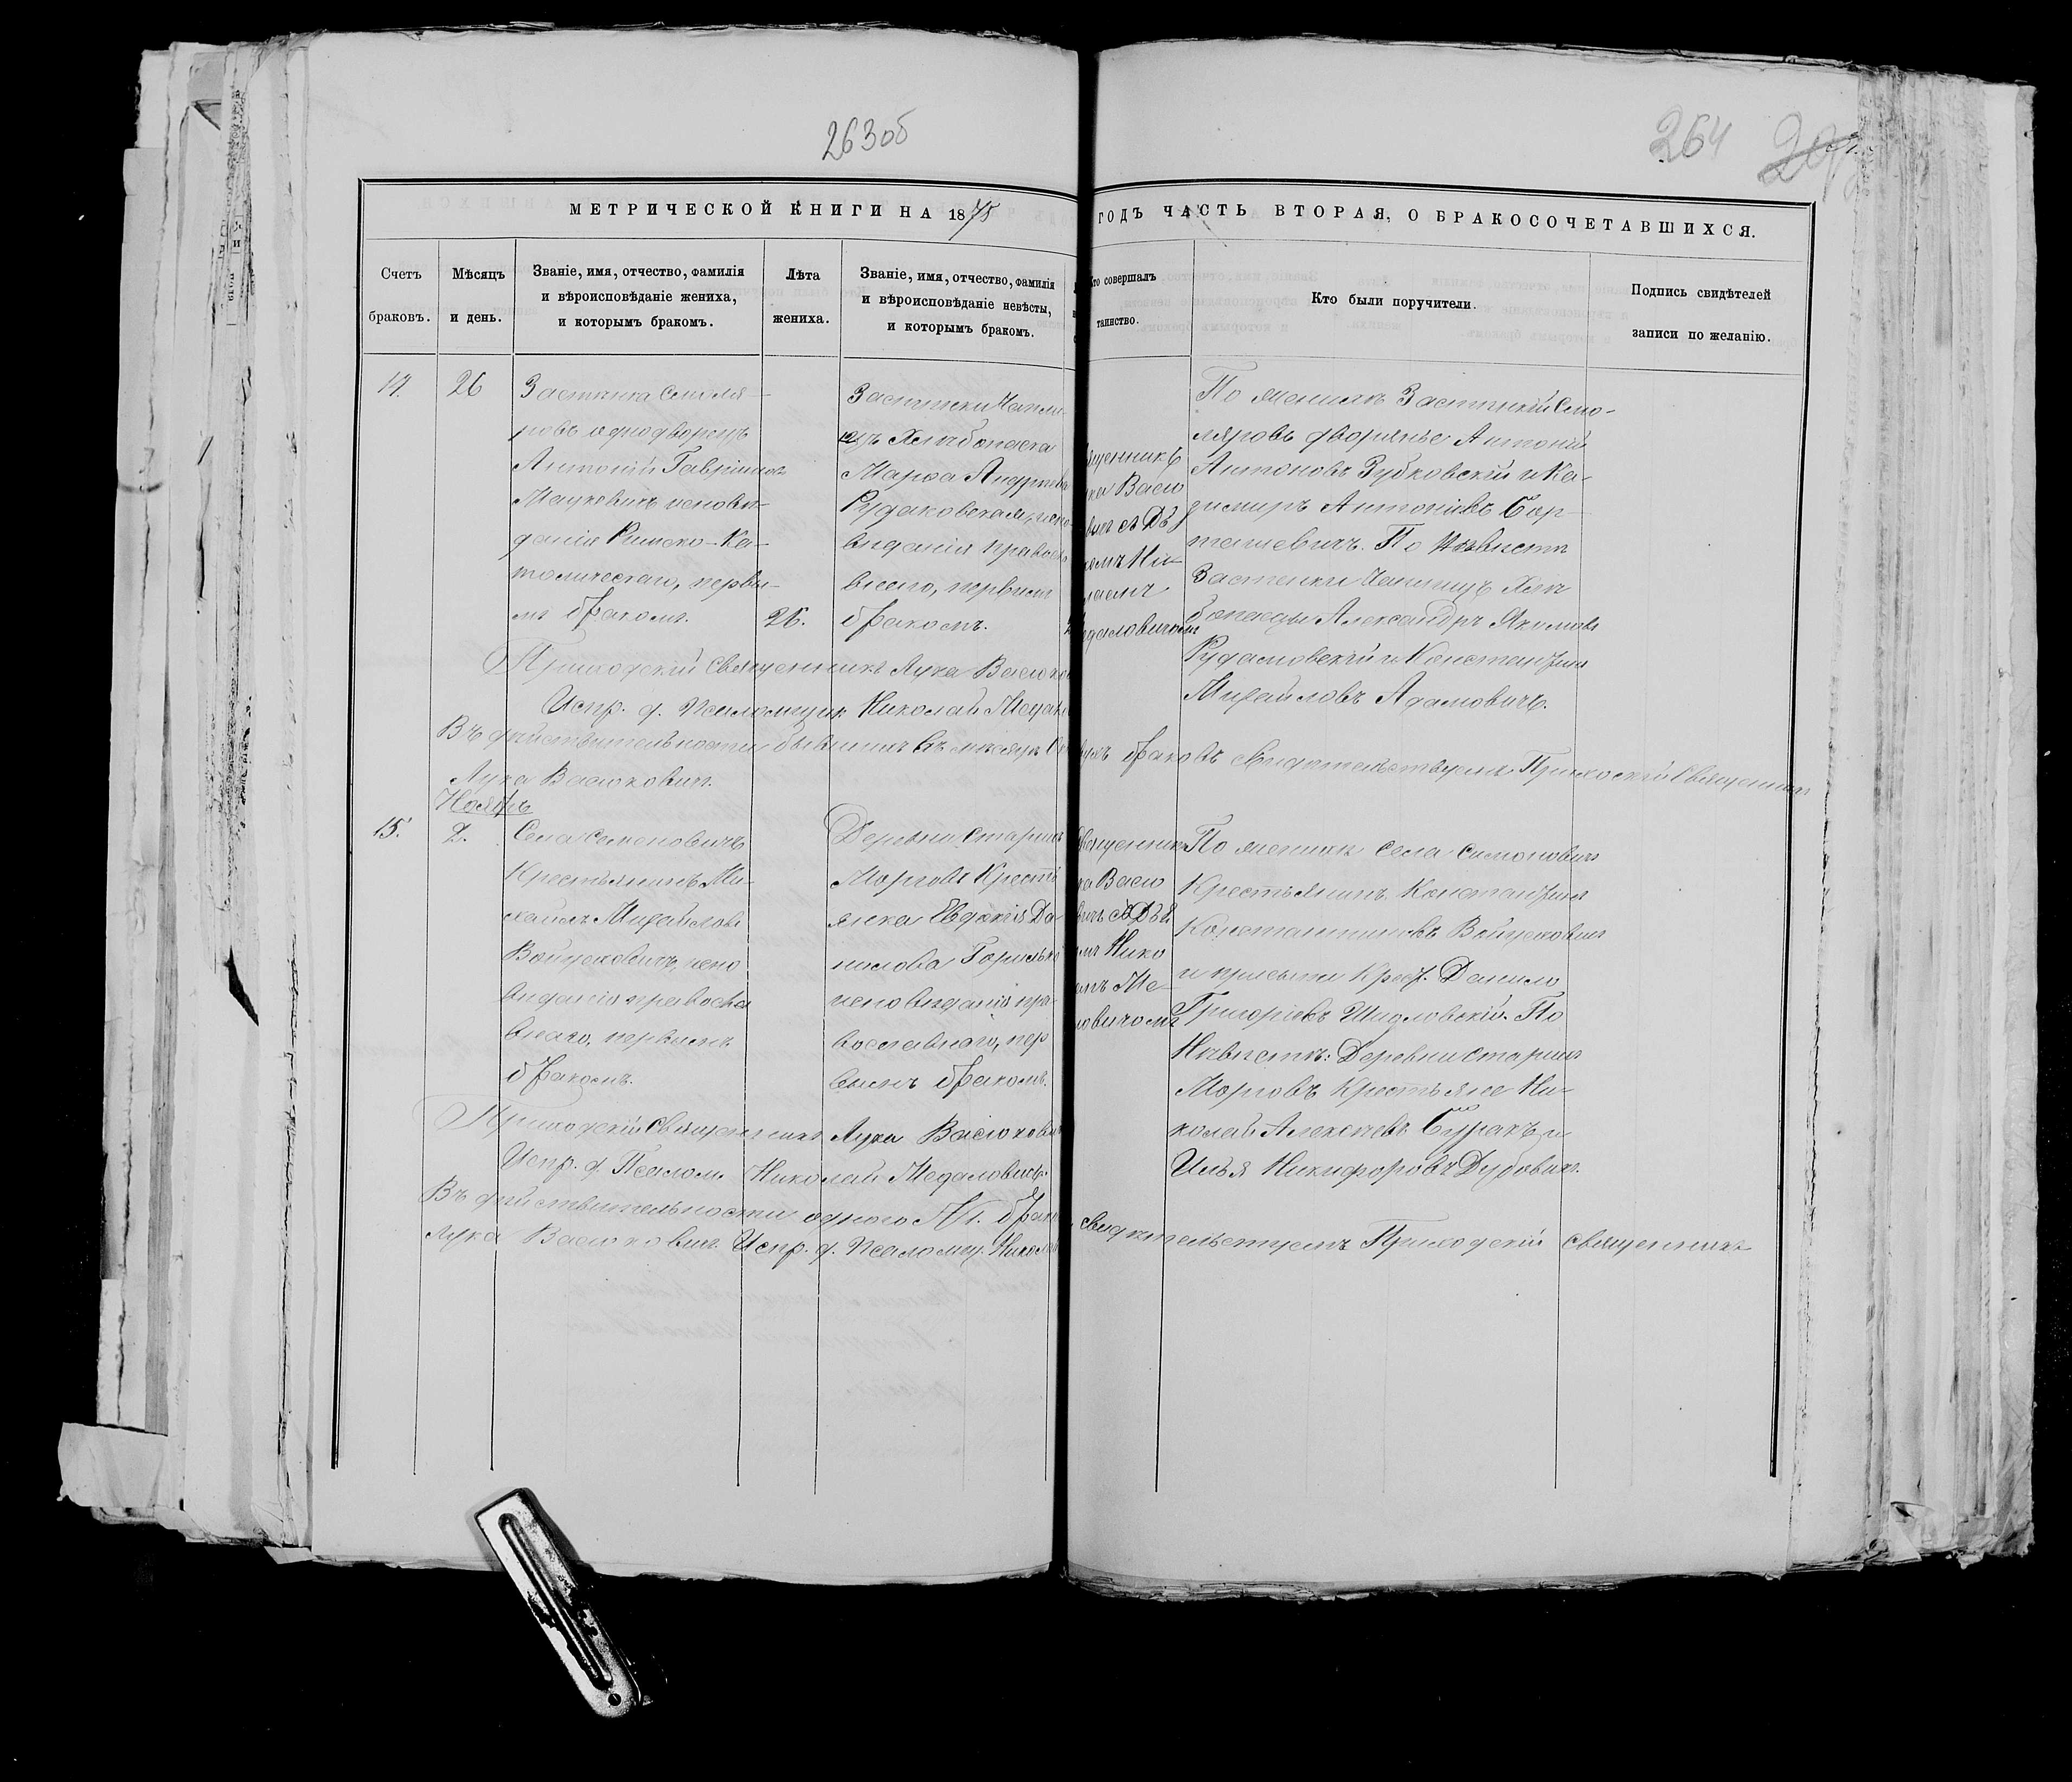 263об
264
МЕТРИЧЕСКОЙ КНИГИ НА 1875
ГОДЪ ЧАСТЬ ВТОРАЯ, О БРАКОСОЧЕТАВШИХСЯ.
Счетъ
браковъ.
Мѣсяцъ
и день.
Званіе, имя, отчество, фамилія
и вѣроисповѣданіе жениха,
и которымъ бракомъ.
Лѣта
жениха.
Званіе, имя, отчество, фамилія
и вѣроисповѣданіе невѣсты,
и которымъ бракомъ.
то совершалъ
таинство.
Кто были поручители.
Подпись свидѣтелей
записи по желанію.
14.
26
Застѣнка Смоля-
ровъ однодворецъ
Антоній Гавріиловъ
Мацкевичъ исповѣ-
данія Римско-Ка-
толическаго, первы-
мъ бракомъ.
26.
Застѣнки
Хлѣбопаска
Марѳа Андреева
испо-
вѣданія правосла
внаго, первымъ
бракомъ.
щенникъ
ка Васю
вичъ съ Дья
комъ Ни-
лаемъ
едаловичомъ
По женихѣ Застѣнкій Смо-
ляровъ дворяне Антоній
Антоновъ Зубковскій и Ка-
зимиръ Антоніевъ Бор-
ташевичъ. По Невѣстѣ
Застенки Хлѣ
бопасцы Александръ Якимовъ
и Константинъ
Михайловъ Адамовичъ.
Приходскій Священникъ Лука Васюко
Испр. д. Псаломщик. Николай Меда
Въ дѣйствительности бывшихъ въ мѣсяцѣ Ок
браковъ свидѣтельствуемъ Приходскій Священникъ
Лука Васюковичъ.
Ноябрь
15.
2.
Села Семеновичъ
Крестьянинъ Ми-
хаилъ Михайловъ
Войцеховичъ, испо
вѣданія правосла
внаго, первымъ
бракомъ.
Деревни Старыхъ
Морговъ Кресть
янка Евдокія Да
нилова
исповѣданія пра-
вославнаго, пер
вымъ бракомъ.
Священникъ
ка Васю
вичъ съ Дья
мъ Нико
емъ Ме-
ловичомъ
По женихѣ села Симоновичъ
Крестьянинъ Константинъ
Константиновъ Войцеховичъ
и Крест. Данило
Григоріевъ Шидловскій. По
Невѣстѣ: Деревни Старыхъ
Морговъ Крестьяне Ни-
колай Алексѣевъ Буракъ и
Илья Никифоровъ Дубовикъ.
Приходскій Священникъ Лука Васюкови
Испр. д. Псалом. Николай Медаловичъ.
Въ дѣйствительности одного № 1. брака
свидѣтельствуемъ Приходскій священникъ
Лука Васюковичъ. Испр. д. Псаломщ. Никола